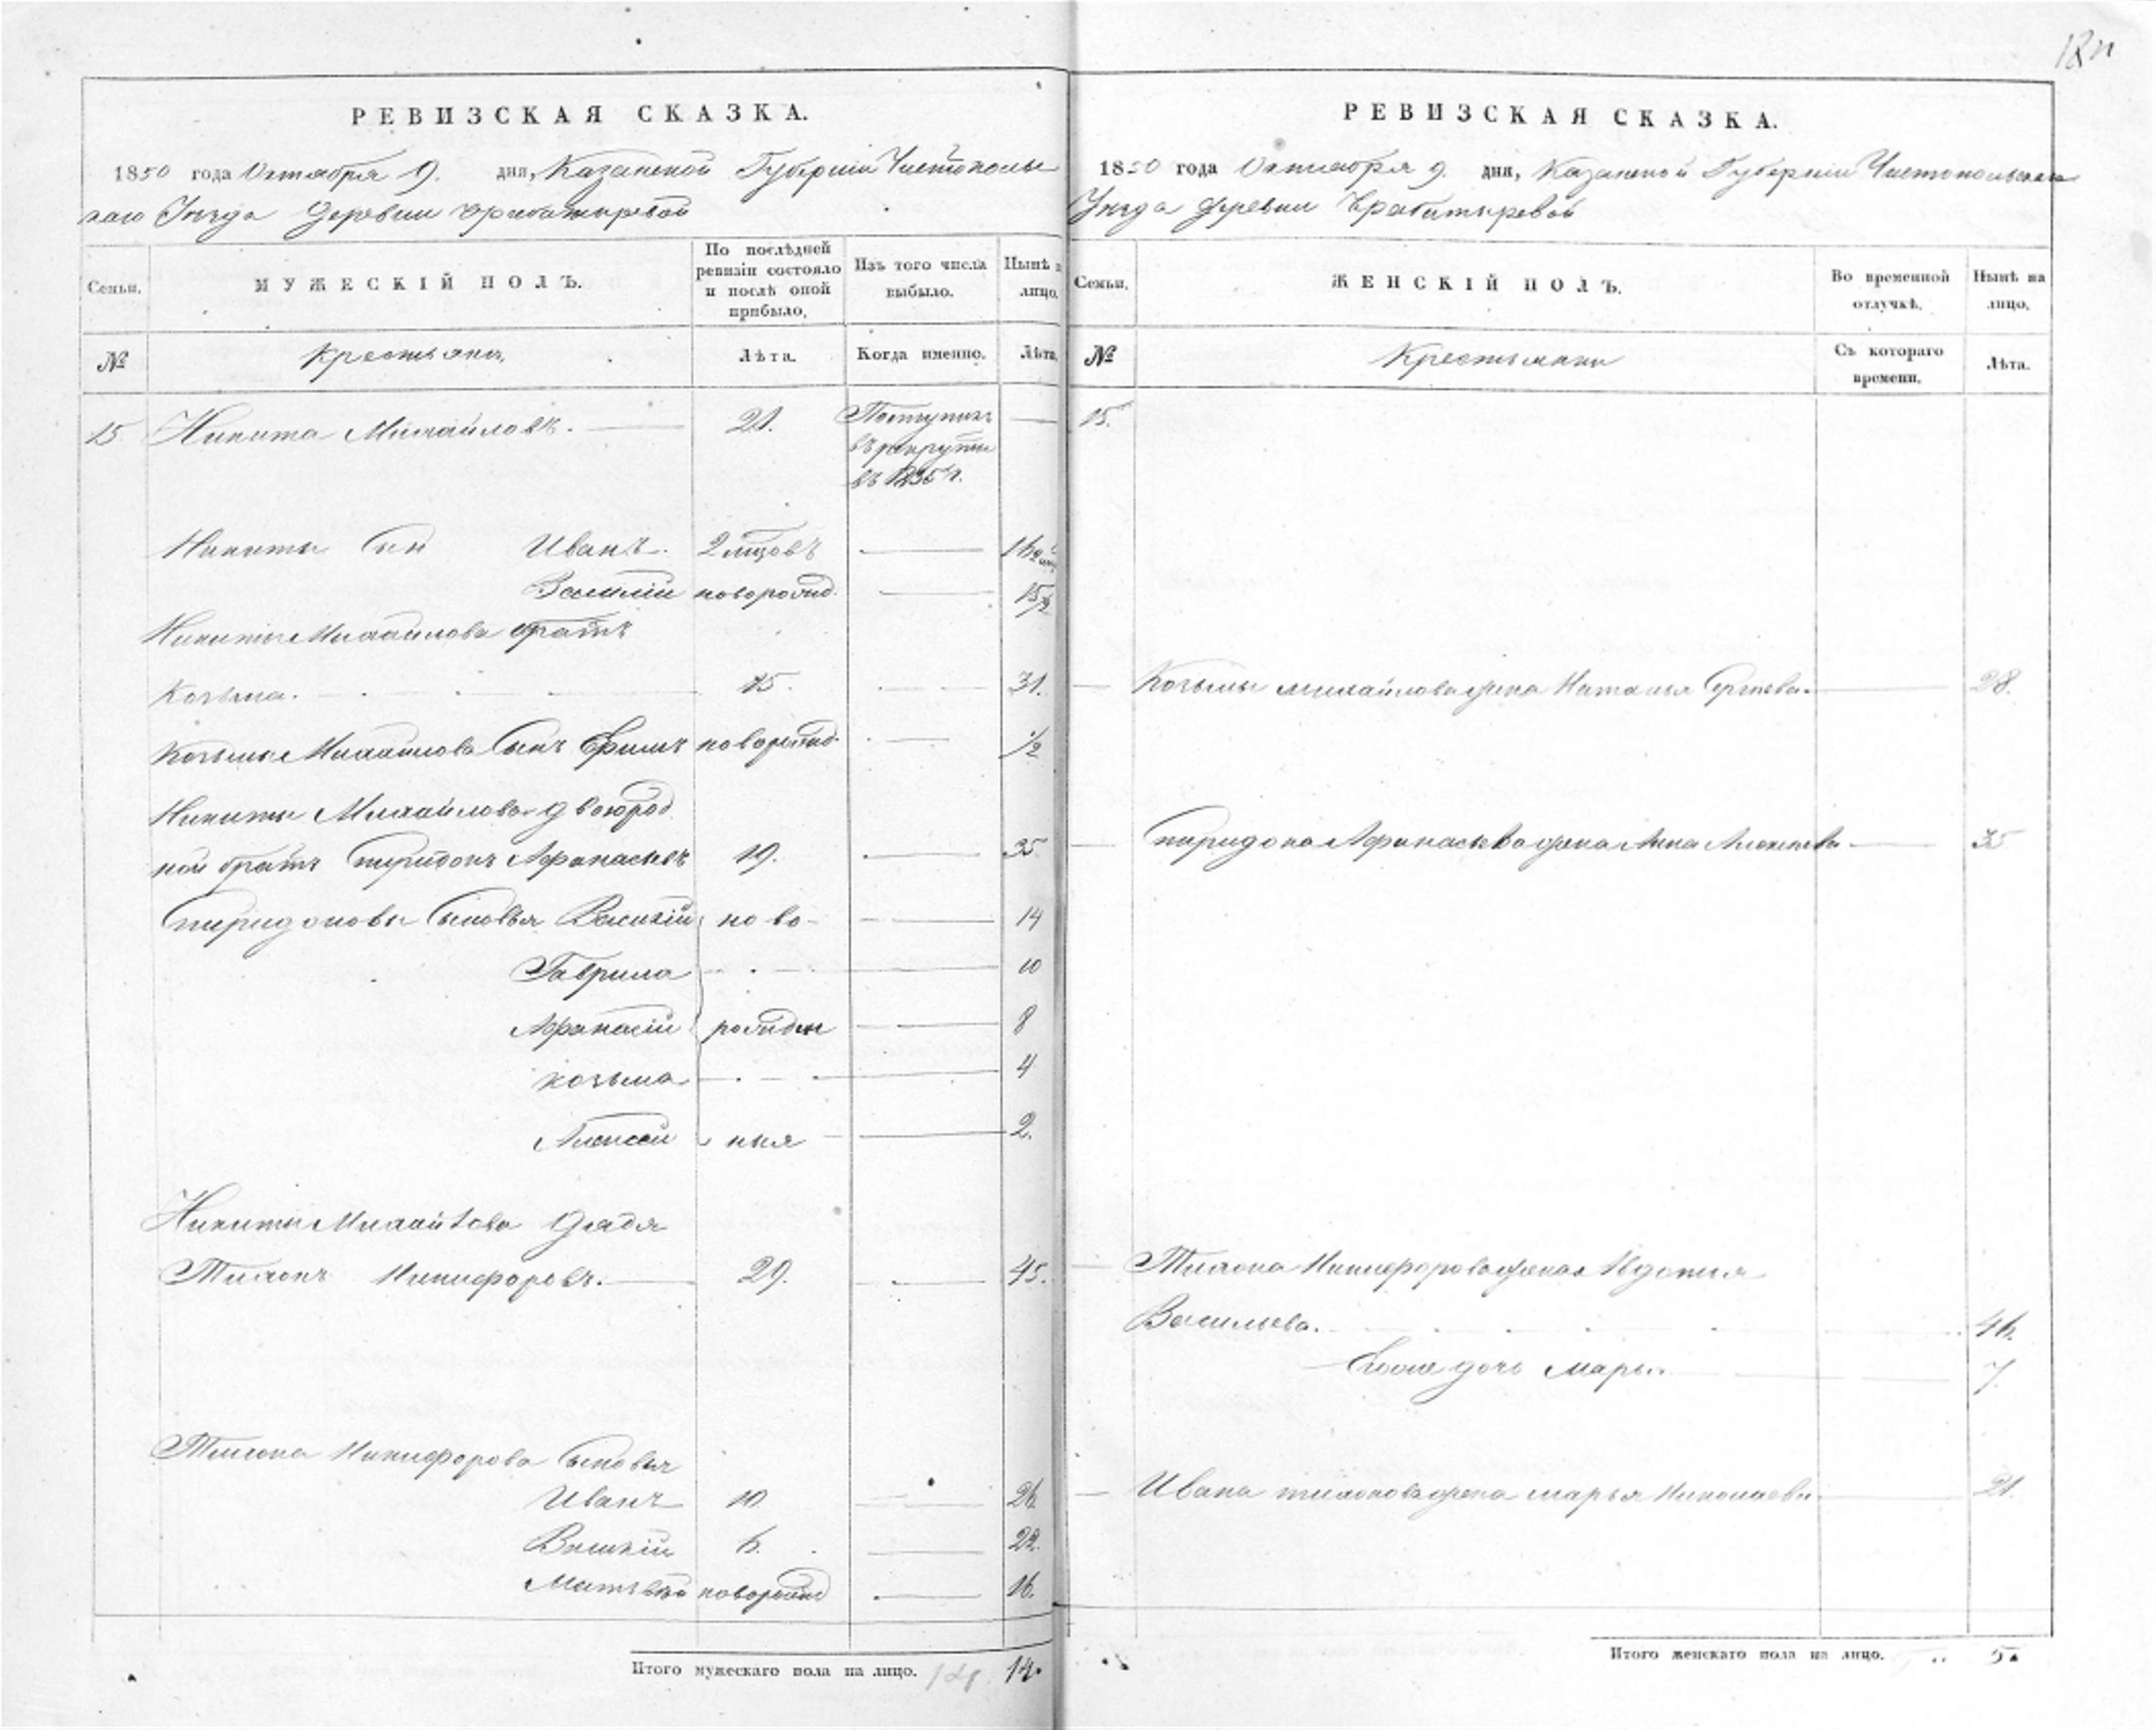 РЕВИЗСКАЯ СКАЗКА.
1850 года Октября 9. дня, Казанской Губернiи Чистополь
скаго Уезда Деревни
Семьи.
МУЖЕСКIЙ ПОЛЪ.
По послѣдней ревизiи состояло и послѣ оной прибыло,
Изъ того числа выбыло.
Нынѣ на лицо.
№
Крестьяне,
Лѣта.
Когда именно.
Лѣта.
15 Никита Михайловъ. 21. Поступилъ
въ рекруты
въ 1835 г.
Никиты сын Иванъ. 2 мцовъ 16
Василiй новорожд. 15 ½
Никиты Михайлова братъ
Козьма. 15. 31.
Козьмы Михайлова сынъ Ефимъ новорожд. ½
Никиты Михайлова двоюрод
ной братъ Спиридонъ Афанасьевъ 19. 35
Спиридоновы сыновья Василiй ново- 14
Гаврила 10
Афанасiй рожден 8
Козьма 4
Алексей ныя 2.
Никиты Михайлова дядя
Тихонъ Никифоровъ. 29. 45.
Тихона Никифорова сыновья
Иванъ 10 26.
Василiй 6. 22.
Матвѣй новорожд 16.
Итого мужескаго пола на лицо. 14.
18
РЕВИЗСКАЯ СКАЗКА.
1850 года Октября 9. дня, Казанской Губернiи Чистопольскаго
Уезда Деревни
Семьи.
ЖЕНСКIЙ ПОЛЪ.
Во временной отлучкѣ.
Нынѣ на лицо.
№
Крестьянки
Съ котораго времени.
Лѣта.
15.
Козьмы Михайлова жена Наталья Сергеева. 28.
Спиридона Афанасьева жена Анна Алексеева 35
Тихона Никифорова жена Авдотья
Васильева. 46.
дочь Марья 7.
Ивана Тихонова жена Марья Николаева 21.
Итого женскаго пола на лицо. 5.